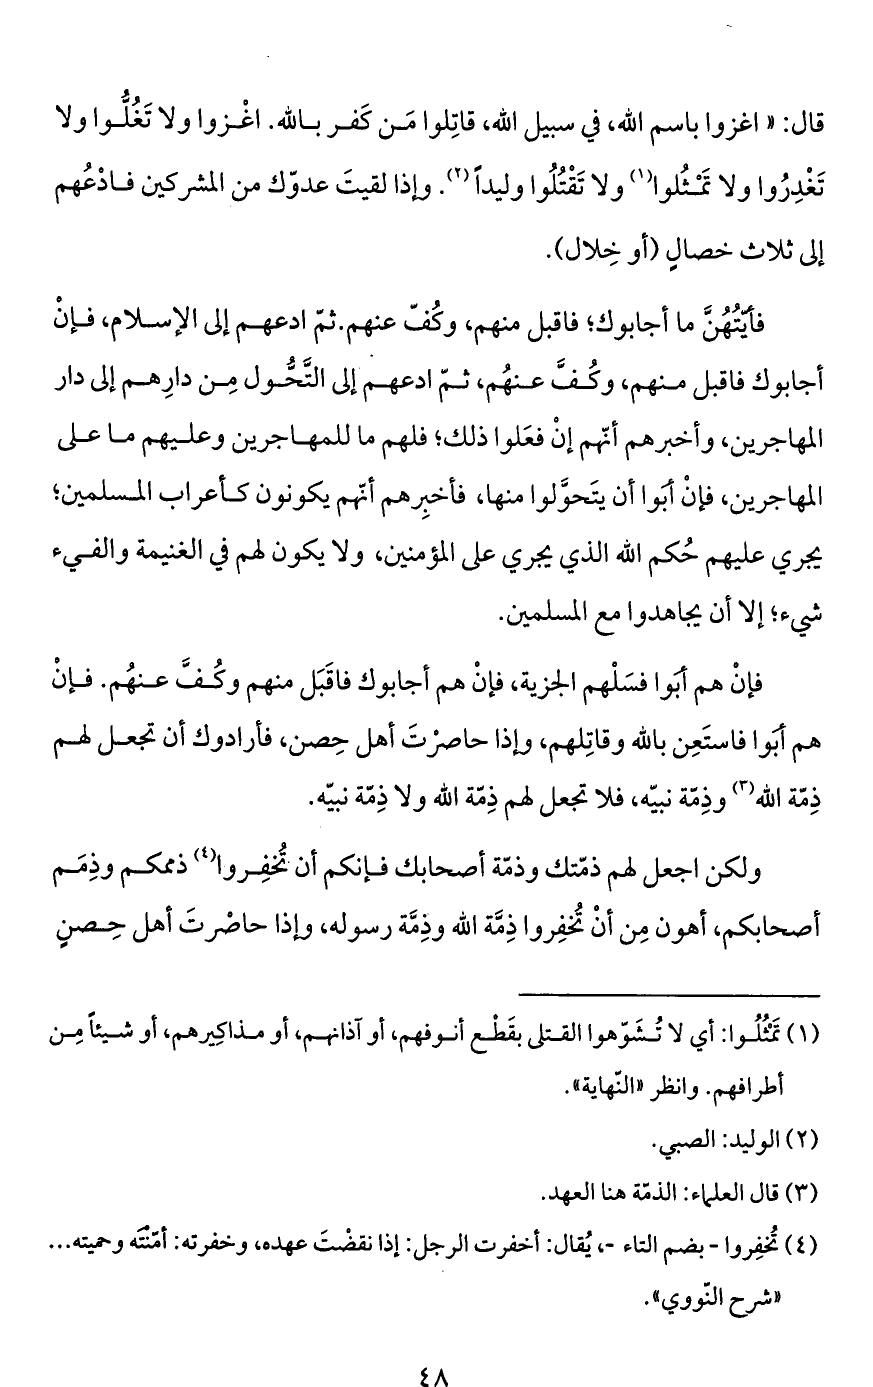 قال: « اغزوا باسم الله، في سبيل الله، قاتِلوا مَـن كَفـر بـالله. اغْـزوا ولا تَغُلُّـوا ولا
تَغْدِرُوا ولا تمْـثُلوا(١) ولا تَقْتُلُوا وليداً (٢). وإذا لقيتَ عدوّك من المشركين فـادْعُهم
إلى ثلاث خصالٍ (أو خِلال).
فأيّتُهُنَّ ما أجابوك؛ فاقبل منهم، وكُفّ عنهم.ثمّ ادعهـم إلى الإسـلام، فـإنْ
أجابوك فاقبل مـنهم، وكُـفَّ عـنهُم، ثـمّ ادعهـم إلى التَّحُّـول مِـن دارِهـم إلى دار
المهاجرين، وأخبرهم أنّهم إنْ فعَلوا ذلك؛ فلهم ما للمهـاجرين وعلـيهم مـا عـلى
المهاجرين، فإنْ أبَوا أن يتَحوَّلوا منها، فأخبِرهم أنّهم يكونون كـأعراب المـسلمين؛
يجري عليهم حُكم الله الذي يجري على المؤمنين، ولا يكون لهم في الغنيمة والفـيء
شيء؛ إلا أن يجاهدوا مع المسلمين.
فإنْ هم أبَوا فسَلْهم الجزية، فإنْ هم أجابوك فاقَبَل منهم وكُـفَّ عـنهُم. فـإنْ
هم أبَوا فاستَعِن بالله وقاتِلهم، وإذا حاصرْتَ أهل حِصن، فأرادوك أن تجعـل لهـم
ذِمّة الله(٣) وذِمّة نبيّه، فلا تجعل لهم ذِمّة الله ولا ذِمّة نبيّه.
ولكن اجعل لهم ذمّتك وذمّة أصحابك فـإنكم أن تُخفِـروا(٤) ذممكـم وذِمَـم
أصحابكم، أهون مِن أنْ تُخفِروا ذِمَّة الله وذِمَّة رسوله، وإذا حاصْرتَ أهل حِـصنٍ
(١) تَمْثُلُـوا: أي لا تُـشَوّهوا القـتلى بقَطْـع أنـوفهم، أو آذانهـم، أو مـذاكيرهم، أو شـيئاً مِـن
أطرافهم. وانظر «النّهاية».
(٢) الوليد: الصبي.
(٣) قال العلماء: الذمّة هنا العهد.
(٤) تُخفِروا - بضم التاء -، يُقال: أخفرت الرجل: إذا نقضْتَ عهده، وخفرته: أمّنْتَه وحميته...
«شرح النّووي».
٤٨